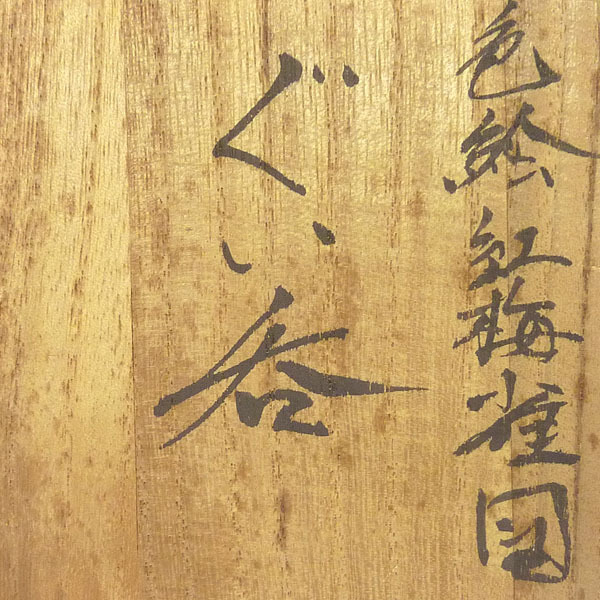 色絵紅梅雀図
ぐい呑